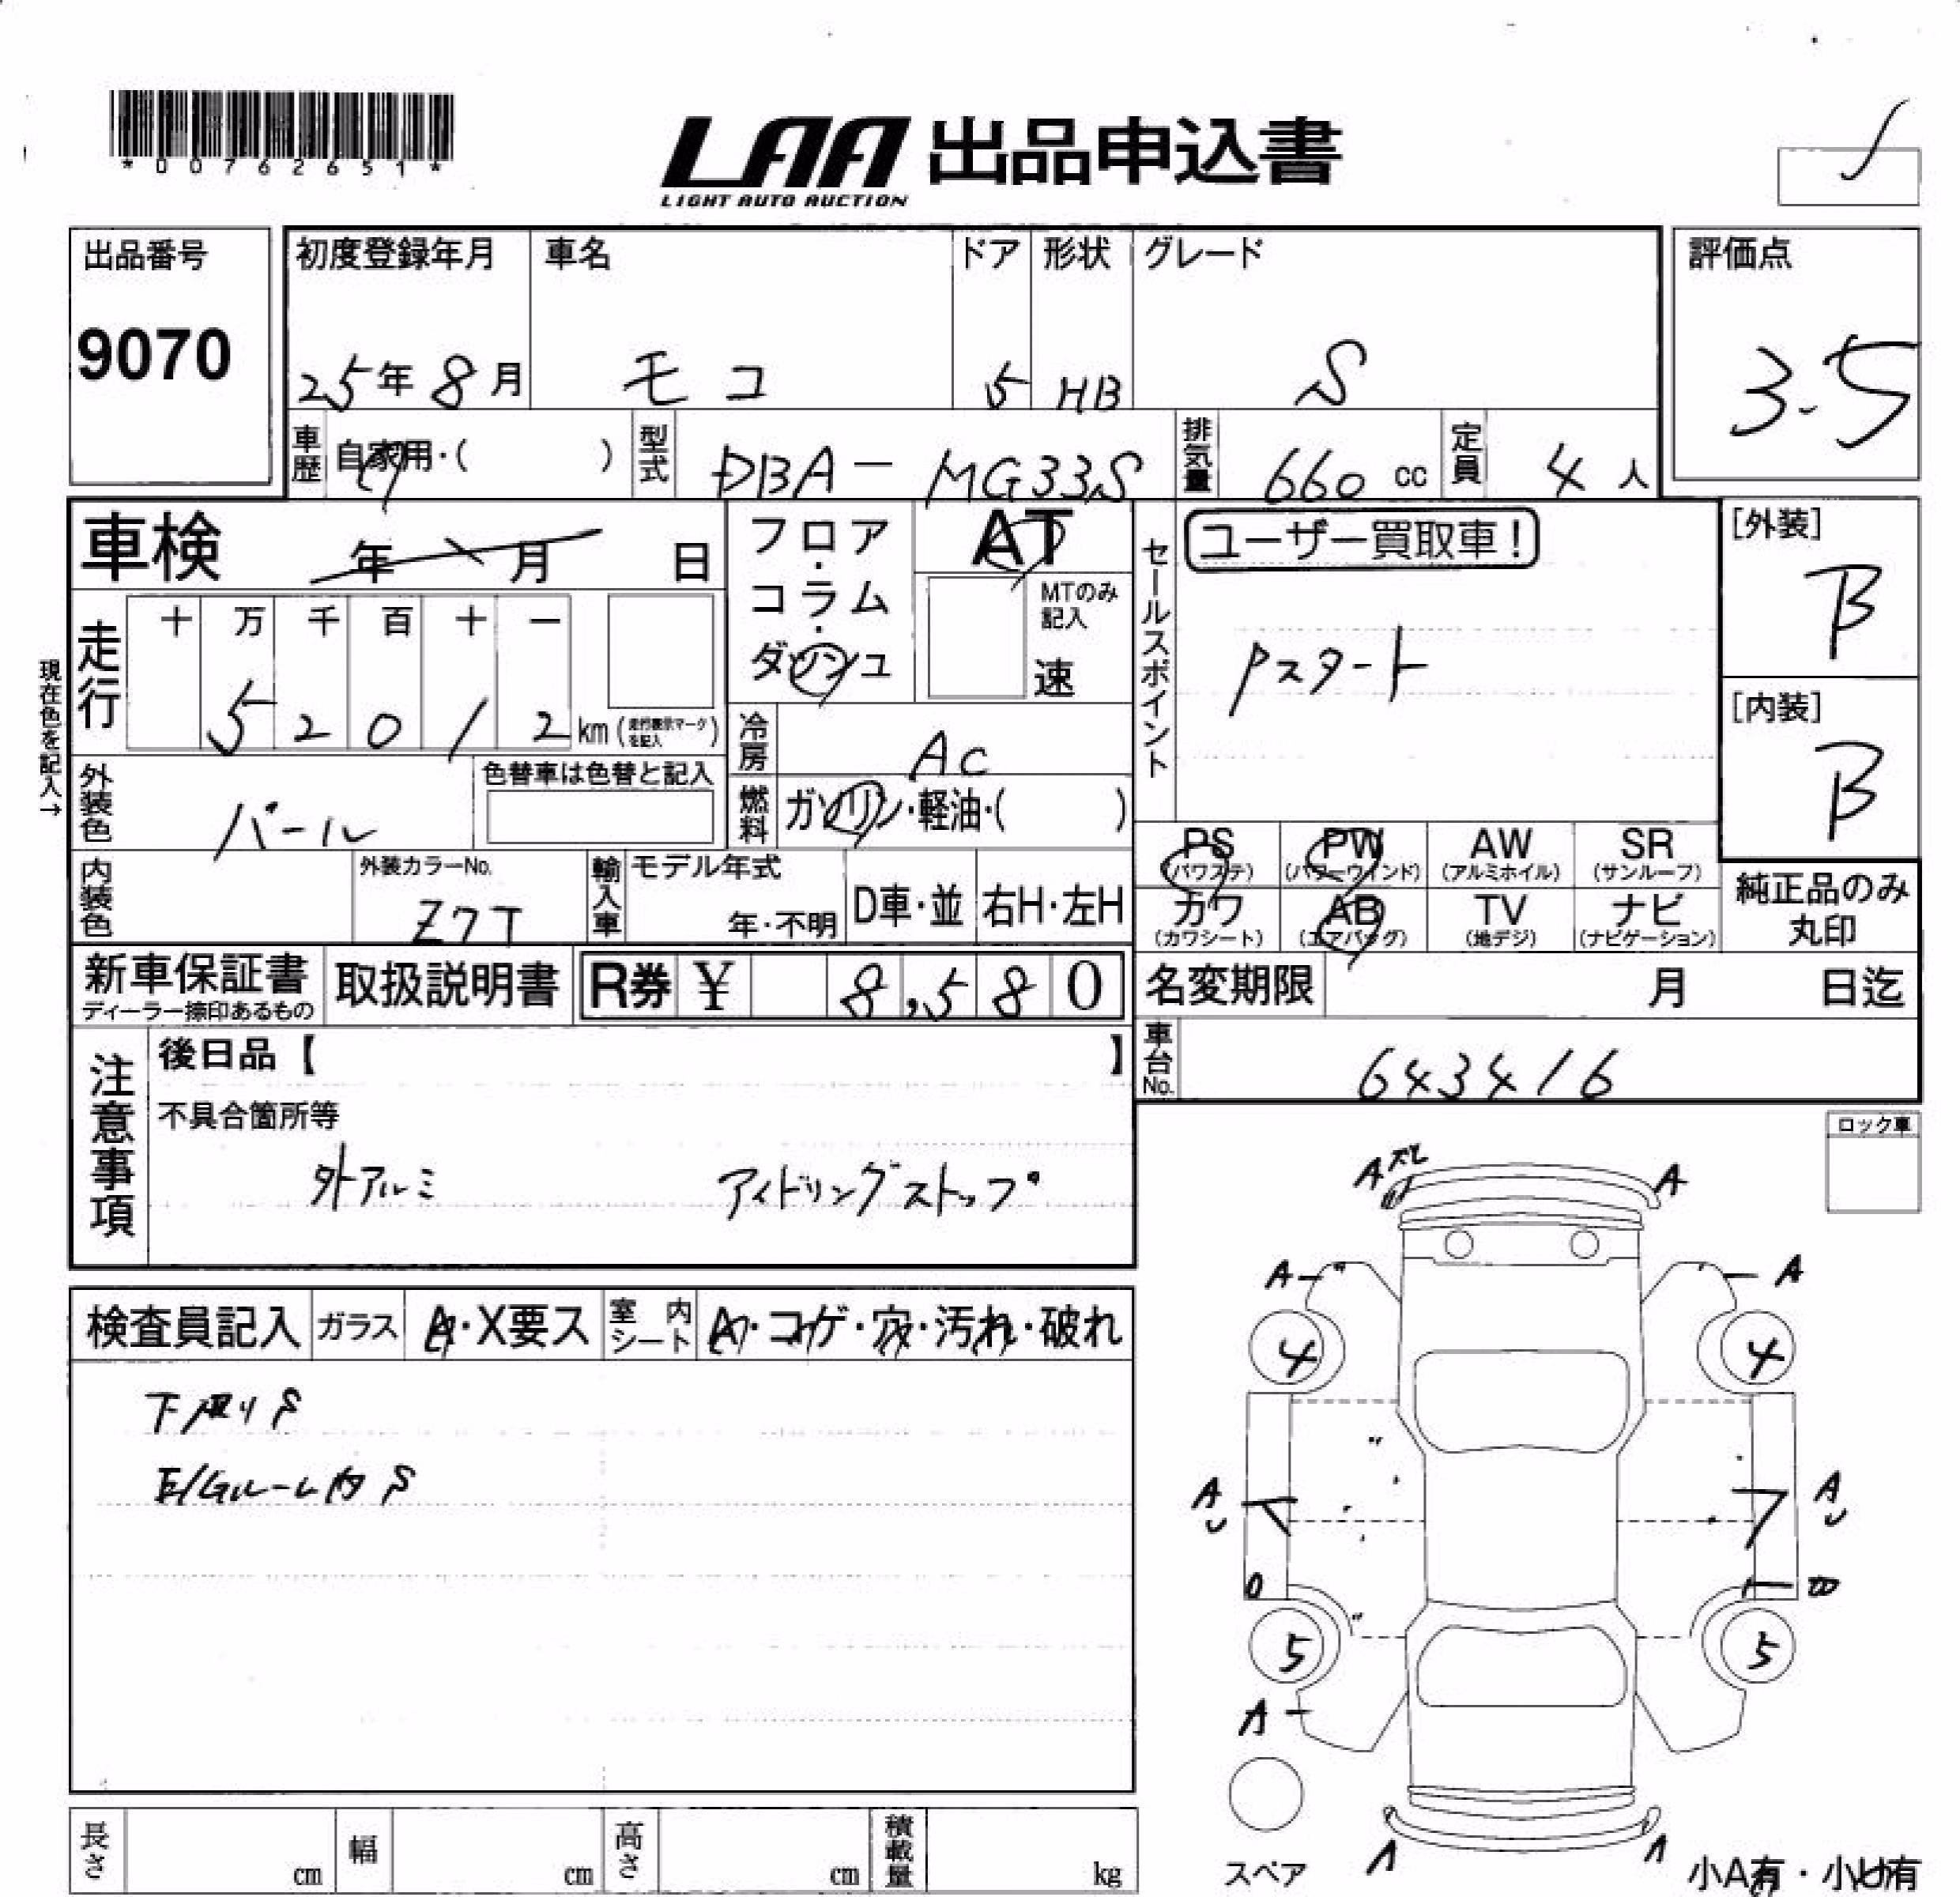 *00762651*
LAA 出品申込書
LIGHT AUTO AUCTION
出品番号
9070
初度登録年月
25年8月
車名
モコ
ドア
5
形状
HB
グレード
S
評価点
3.5
車歴
自家用・( )
型式
DBA-MG33S
排気量
660 cc
定員
4人
車検
年 月 日
フロア・コラム・ダッシュ
AT
MTのみ記入
速
セールスポイント
ユーザー買取車!
Pスタート
[外装]
B
[内装]
B
現在色を記入→
走行
十 万 千 百 十 一
5 2 0 1 2 km(走行表示マークを記入)
冷房
AC
燃料
ガソリン・軽油・( )
外装色
パール
色替車は色替と記入
内装色
外装カラーNo.
Z7T
輸入車
モデル年式
年・不明
D車・並
右H・左H
PS
(パワステ)
PW
(パワーウインド)
AW
(アルミホイル)
SR
(サンルーフ)
カワ
(カワシート)
AB
(エアバッグ)
TV
(地デジ)
ナビ
(ナビゲーション)
純正品のみ
丸印
新車保証書
ディーラー捺印あるもの
取扱説明書
R券 ¥ 8,580
名変期限
月 日迄
車台No.
643416
注意事項
後日品【 】
不具合箇所等
外アルミ アイドリングストップ
ロック車
検査員記入
ガラス
A・X要ス
室内シート
A・コゲ・穴・汚れ・破れ
下廻りS
E/Gルーム内S
A A
A A
4 4
A A
5 5
A
A A
スペア
小A有・小U有
長さ cm
幅 cm
高さ cm
積載量 kg